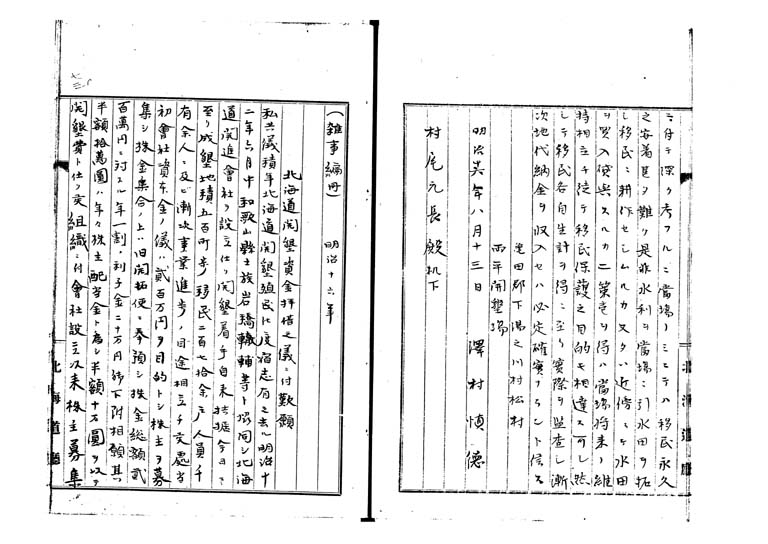 ニ付テ深ク考フルニ當場ノミニテハ移民永久
之安着甚タ難ク是非水利ヲ當場ニ引水田ヲ拓
シ移民ニ耕作セシムルカ又タハ近傍ニテ水田
ヲ買入貸與スルカ二策定ヲ得ハ當場将来ノ維
持相立チ従テ移民保護之目的モ相達ス可シ然
シテ移民各自生計ヲ得ニ至リ實際ヲ監査シ漸
次地代納金ヲ収入セハ必定確實ナラント信ス
亀田郡下湯之川村松村
両平開墾場
明治十六年八月十三日 澤村慎徳
村尾元長殿机下
(雑事編冊) 明治十六年
北海道開墾資金拝借之儀ニ付歎願
私共儀積年北海道開墾殖民之宿志有之去ル明治十
二年六月中和歌山縣士族岩橋轍輔等ト協同シ北海
道開進會社ヲ設立仕リ開墾着手自来拮据今日ニ
至リ成墾地積五百町歩移民二百七拾余戸人員千
有余人ニ及ヒ漸次事業進歩ノ目途相立チ候處当
初會社資本金ノ儀ハ貳百万円ヲ目的トシ株主ヲ募
集シ株金集合ノ上ハ旧開拓使ニ奉預シ株金総額貳
百萬円ニ対スル年一割ノ利子金二十万円御下附相願其
半額拾萬圓ハ年々株主配当金ト為シ半額十万圓ヲ以テ
開墾費ト仕ル之組織ニ付會社設立以来株主募集
北海道廳
北海道廳